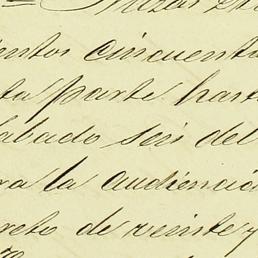 entos cincuenta
ta parte hasta
sabado seis del
ra la audiencia
reto de veinte y